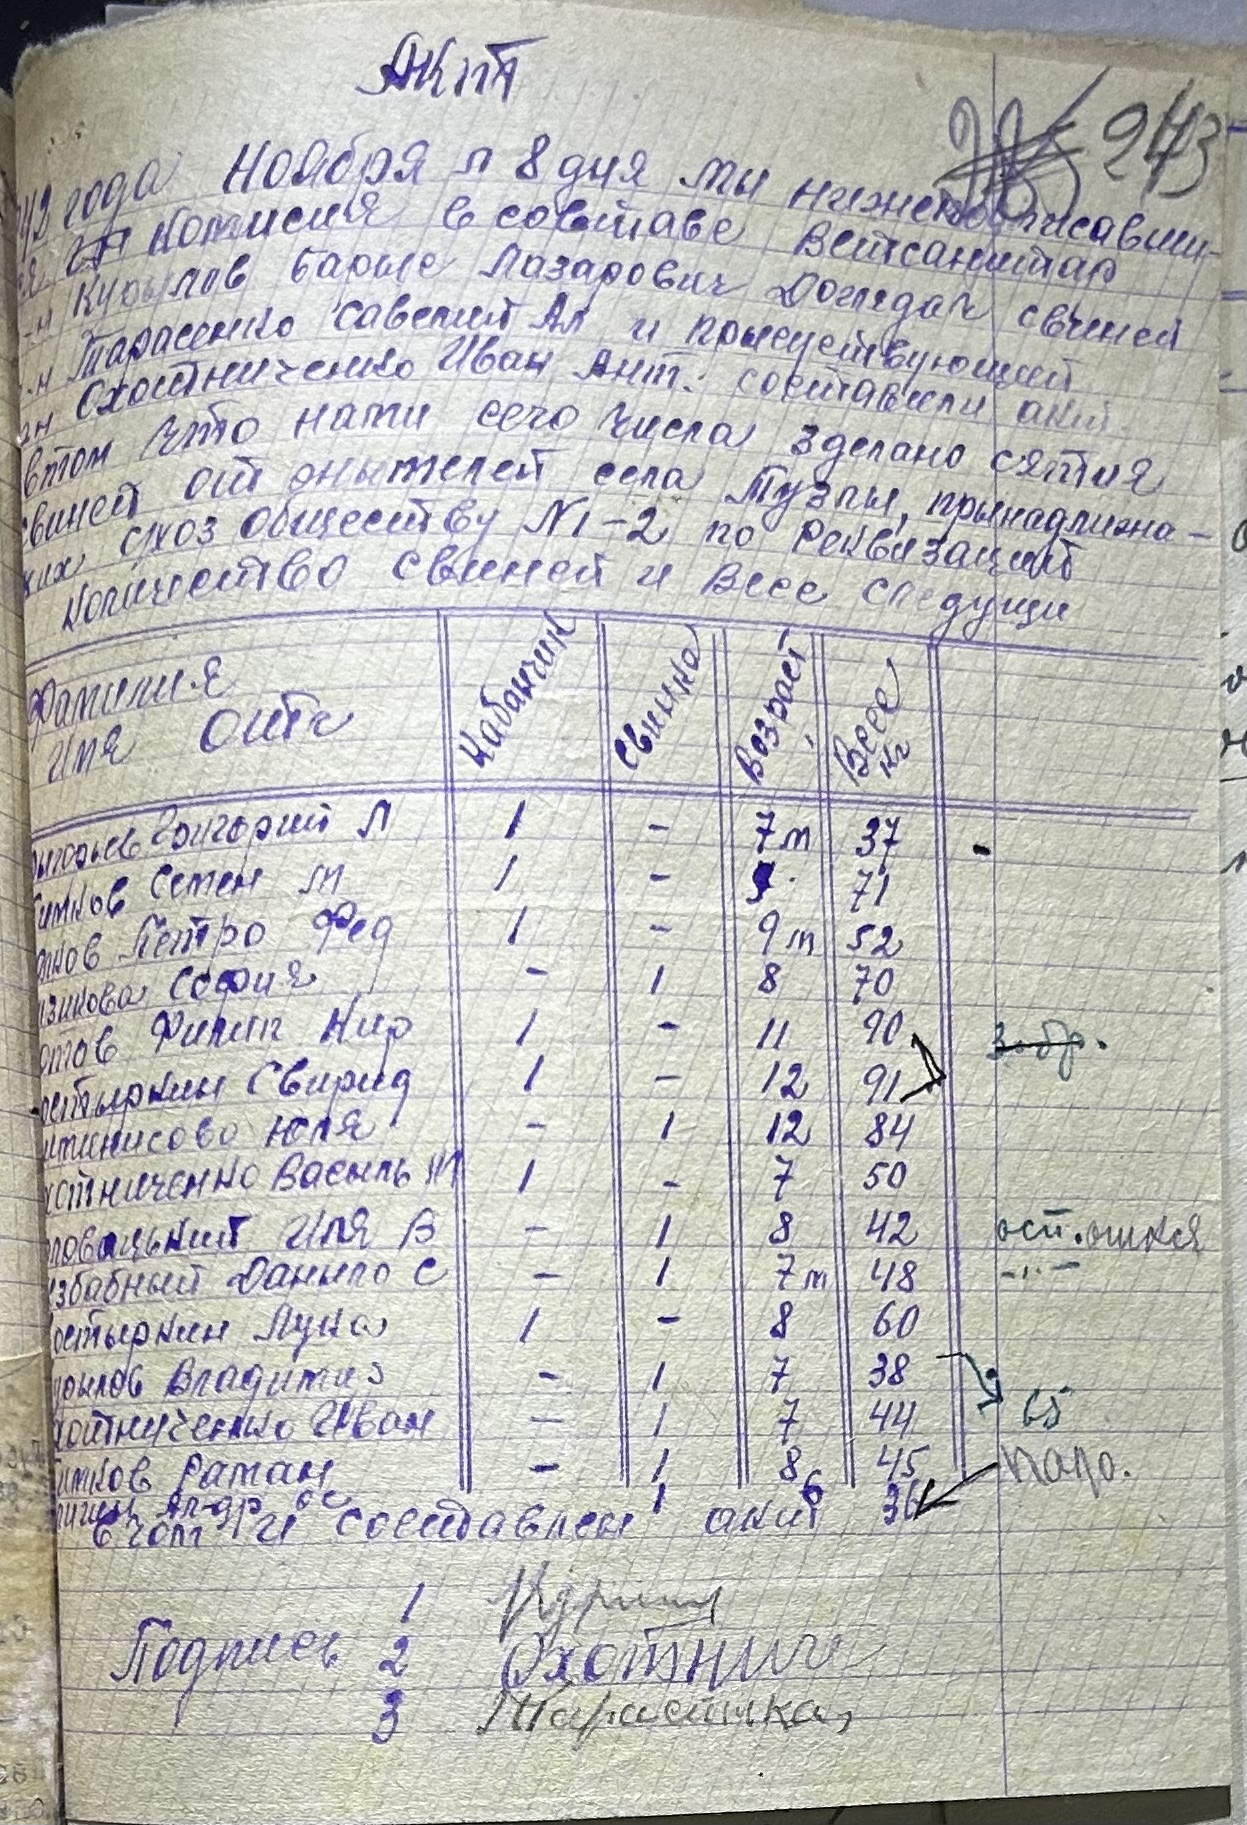 Акт
243
942 года Ноября м 8 дня мы нижеподписавши-
ся Комисия в составе Ветсанитар
Курилов Барис Лазарович Доглядач свиней
Тарасенко Савелий Ал и прысуствующий
Охотниченко Иван Ант. составили акт
втом что нами сего числа зделано сятия
свиней от жытелей села Тузлы, прынадлижа-
их с/хоз обществу №1-2 по реквизаций
количество свиней и весе следущи
Фамилия Кабанчик Свинка Возраст Весе
имя отч кг
Григорий Л 1 - 7 м 37
Семен М 1 - 71
Петро Фед 1 - 9 м 52
София - 1 8 70
Филип Кир 1 - 11 90
остыркин Свирид 1 - 12 91
Юля - 1 12 84
хотниченко Василь М 1 - 7 50
Иля В - 1 8 42
езбабный Данило С - 1 7 м 48
остыркин Лука 1 - 8 60
урилов Владимир - 1 7 38 65
хотниченко Иван - 1 7 44
Раман - 1 8 45
1 6 36
в чом и составлен акт
1
Подпись 2 Охотнич
3